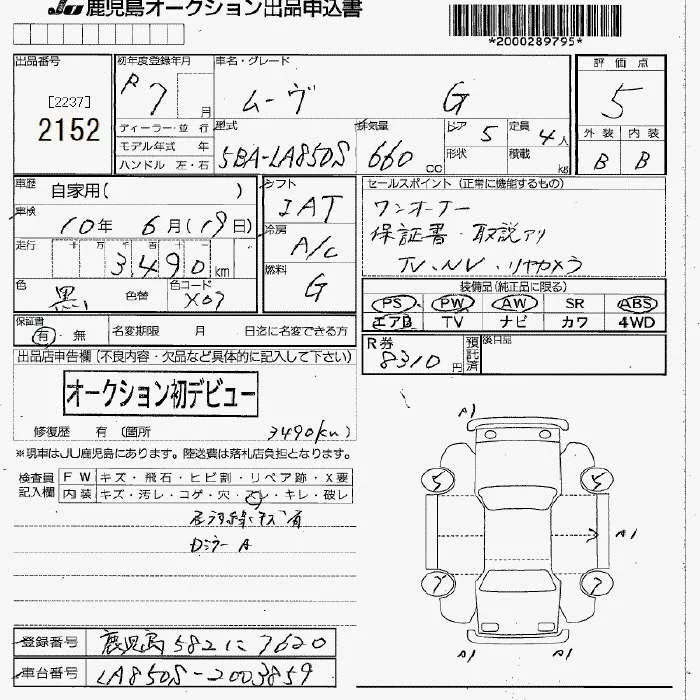 JU 鹿児島オークション出品申込書
*2000289795*
出品番号
[2237]
2152
初年度登録年月
R 7 月
車名・グレード
ムーヴ G
ディーラー・並 行
モデル年式 年
ハンドル 左・右
型式
5BA-LA850S
排気量
660 cc
ドア 5
形状
定員 4人
積載 kg
評価点
5
外装 内装
B B
車歴 自家用( )
車検 10年 6月(19日)
走行 十 万 千 百 十 一
3,490 km
色 黒 色替
色コード X07
シフト
IAT
冷房
A/C
燃料
G
セールスポイント (正常に機能するもの)
ワンオーナー
保証書・取説アリ
TV、NV、リヤカメラ
装備品(純正品に限る)
PS PW AW SR ABS
エアB TV ナビ カワ 4WD
保証書 有・無
名変期限 月 日迄に名変できる方
R券 8310円
預託済
後日品
出品店申告欄 (不良内容・欠品など具体的に記入して下さい)
オークション初デビュー
修復歴 有 (箇所 3490km)
※現車はJU鹿児島にあります。陸送費は落札店負担となります。
検査員記入欄
FW キズ・飛石・ヒビ割・リペア跡・X要
内装 キズ・汚レ・コゲ・穴・スレ・キレ・破レ
Dミラー A
A1
5 5
A1
7 7
A1 A1
登録番号 鹿児島 582 に 7620
車台番号 LA850S-2003859